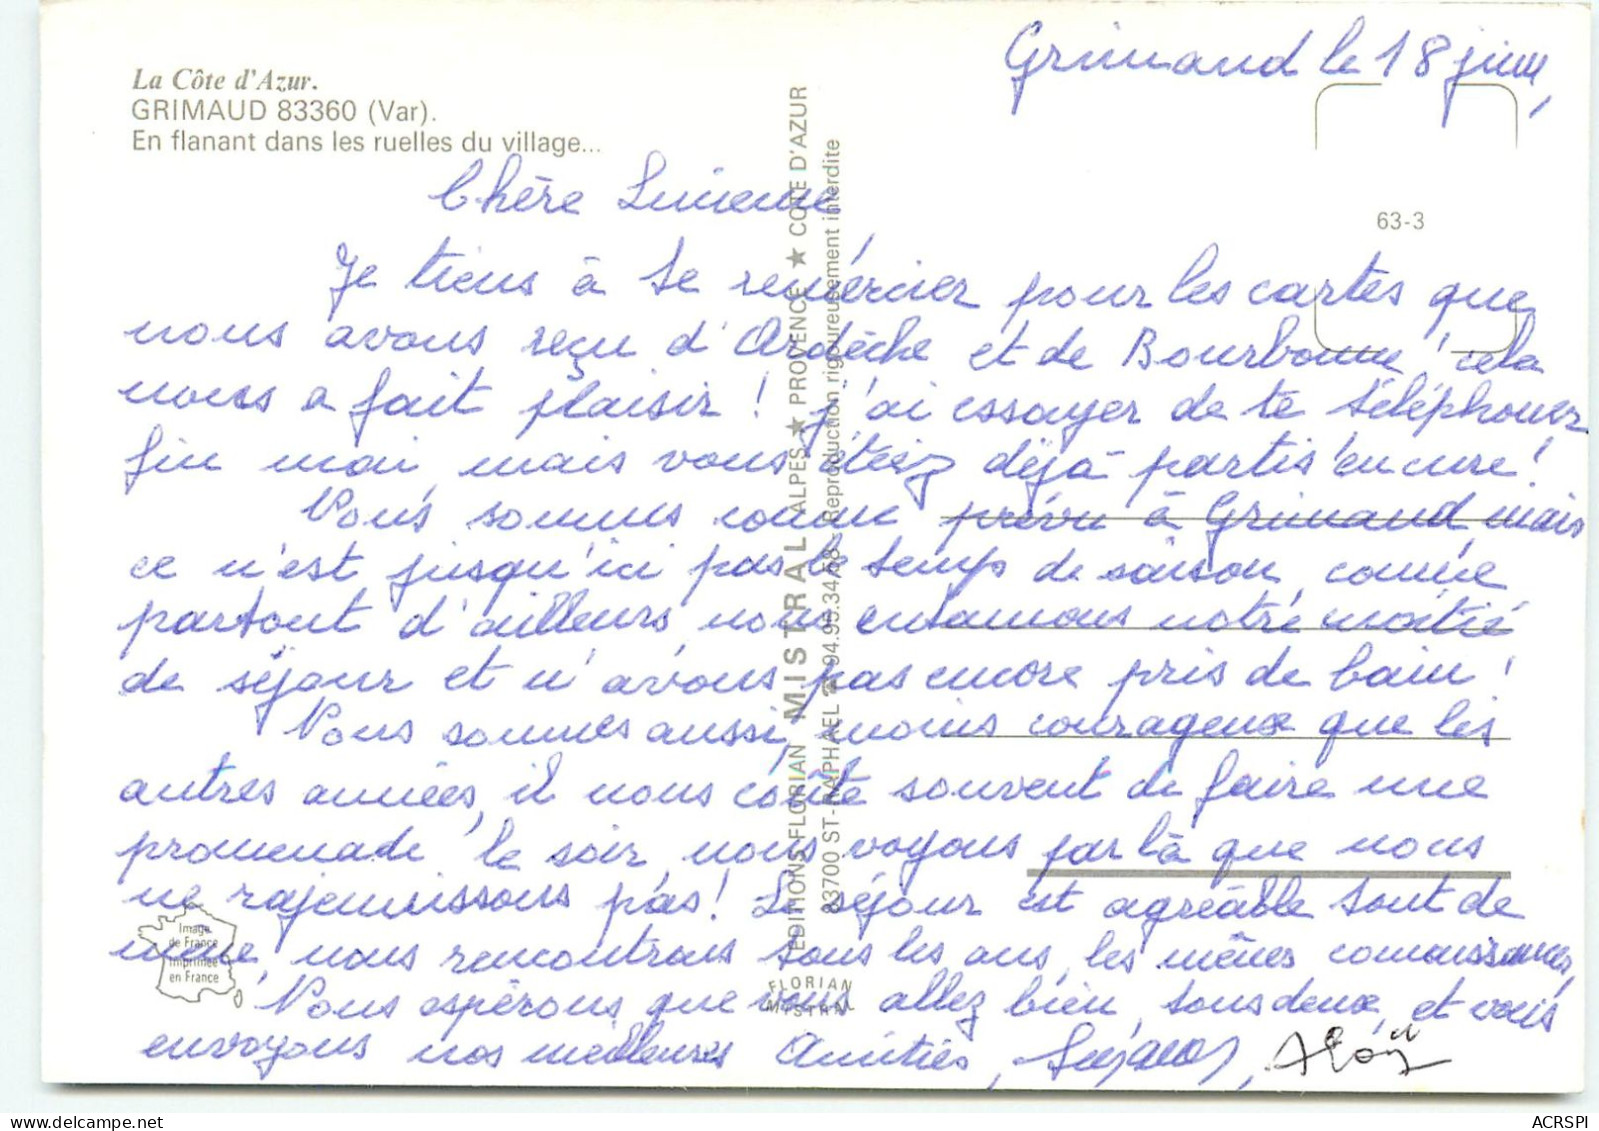 Grimaud le 18 juin,
La Côte d'Azur.
GRIMAUD 83360 (Var).
En flanant dans les ruelles du village...
63-3
Chère Lucienne
Je tiens à te remércier pour les cartes que
nous avons reçu d'Ardèche et de Bourbonne, cela
nous a fait plaisir ! j'ai essayer de te téléphoner
fin mai, mais vous étiez déjà partis en cure !
Nous sommes comme prévu à Grimaud mais
ce n'est jusqu'ici pas le temps de saison, comme
partout d'ailleurs, nous entamons notre moitié
de séjour et n'avons pas encore pris de bain !
Nous sommes aussi, moins courageux que les
autres années, il nous coûte souvent de faire une
promenade le soir, nous voyons par là que nous
ne rajeunissons pas ! Le séjour est agréable tout de
même, nous rencontrons tous les ans, les mêmes connaissances,
Nous espérons que vous allez bien, tous deux, et vous
envoyons nos meilleures Amitiés,
EDITIONS FLORIAN MISTRAL ALPES ★ PROVENCE ★ COTE D'AZUR
83700 ST-RAPHAEL ☎ 94.95.34.58 Reproduction rigoureusement interdite
Image
de France
Imprimée
en France
FLORIAN
MISTRAL
ACRSPI